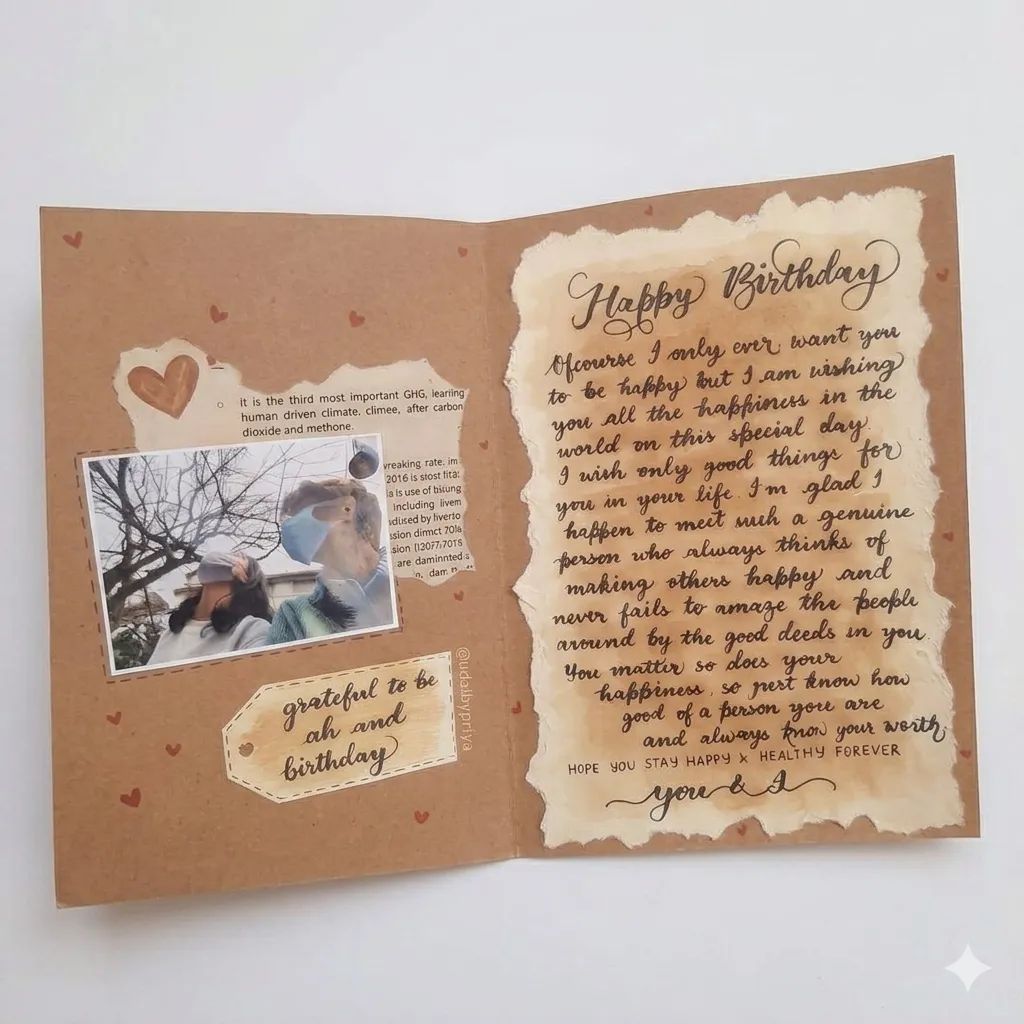 it is the third most important GHG, learling
human driven climate. climee, after carbon
dioxide and methone.
vreaking rate. im
2016 is stost fita:
a is use of bitung
including livem
udised by liverto
ssion dimct 701a
sion (12077:7018
are damninted s
grateful to be
ah and
birthday
@udaibbypriya
Happy Birthday
Ofcourse I only ever want you
to be happy but I am wishing
you all the happiness in the
world on this special day.
I wish only good things for
you in your life. I'm glad I
happen to meet such a genuine
person who always thinks of
making others happy and
never fails to amaze the people
around by the good deeds in you.
You matter so does your
happiness, so just know how
good of a person you are
and always know your worth
HOPE YOU STAY HAPPY x HEALTHY FOREVER
you & I